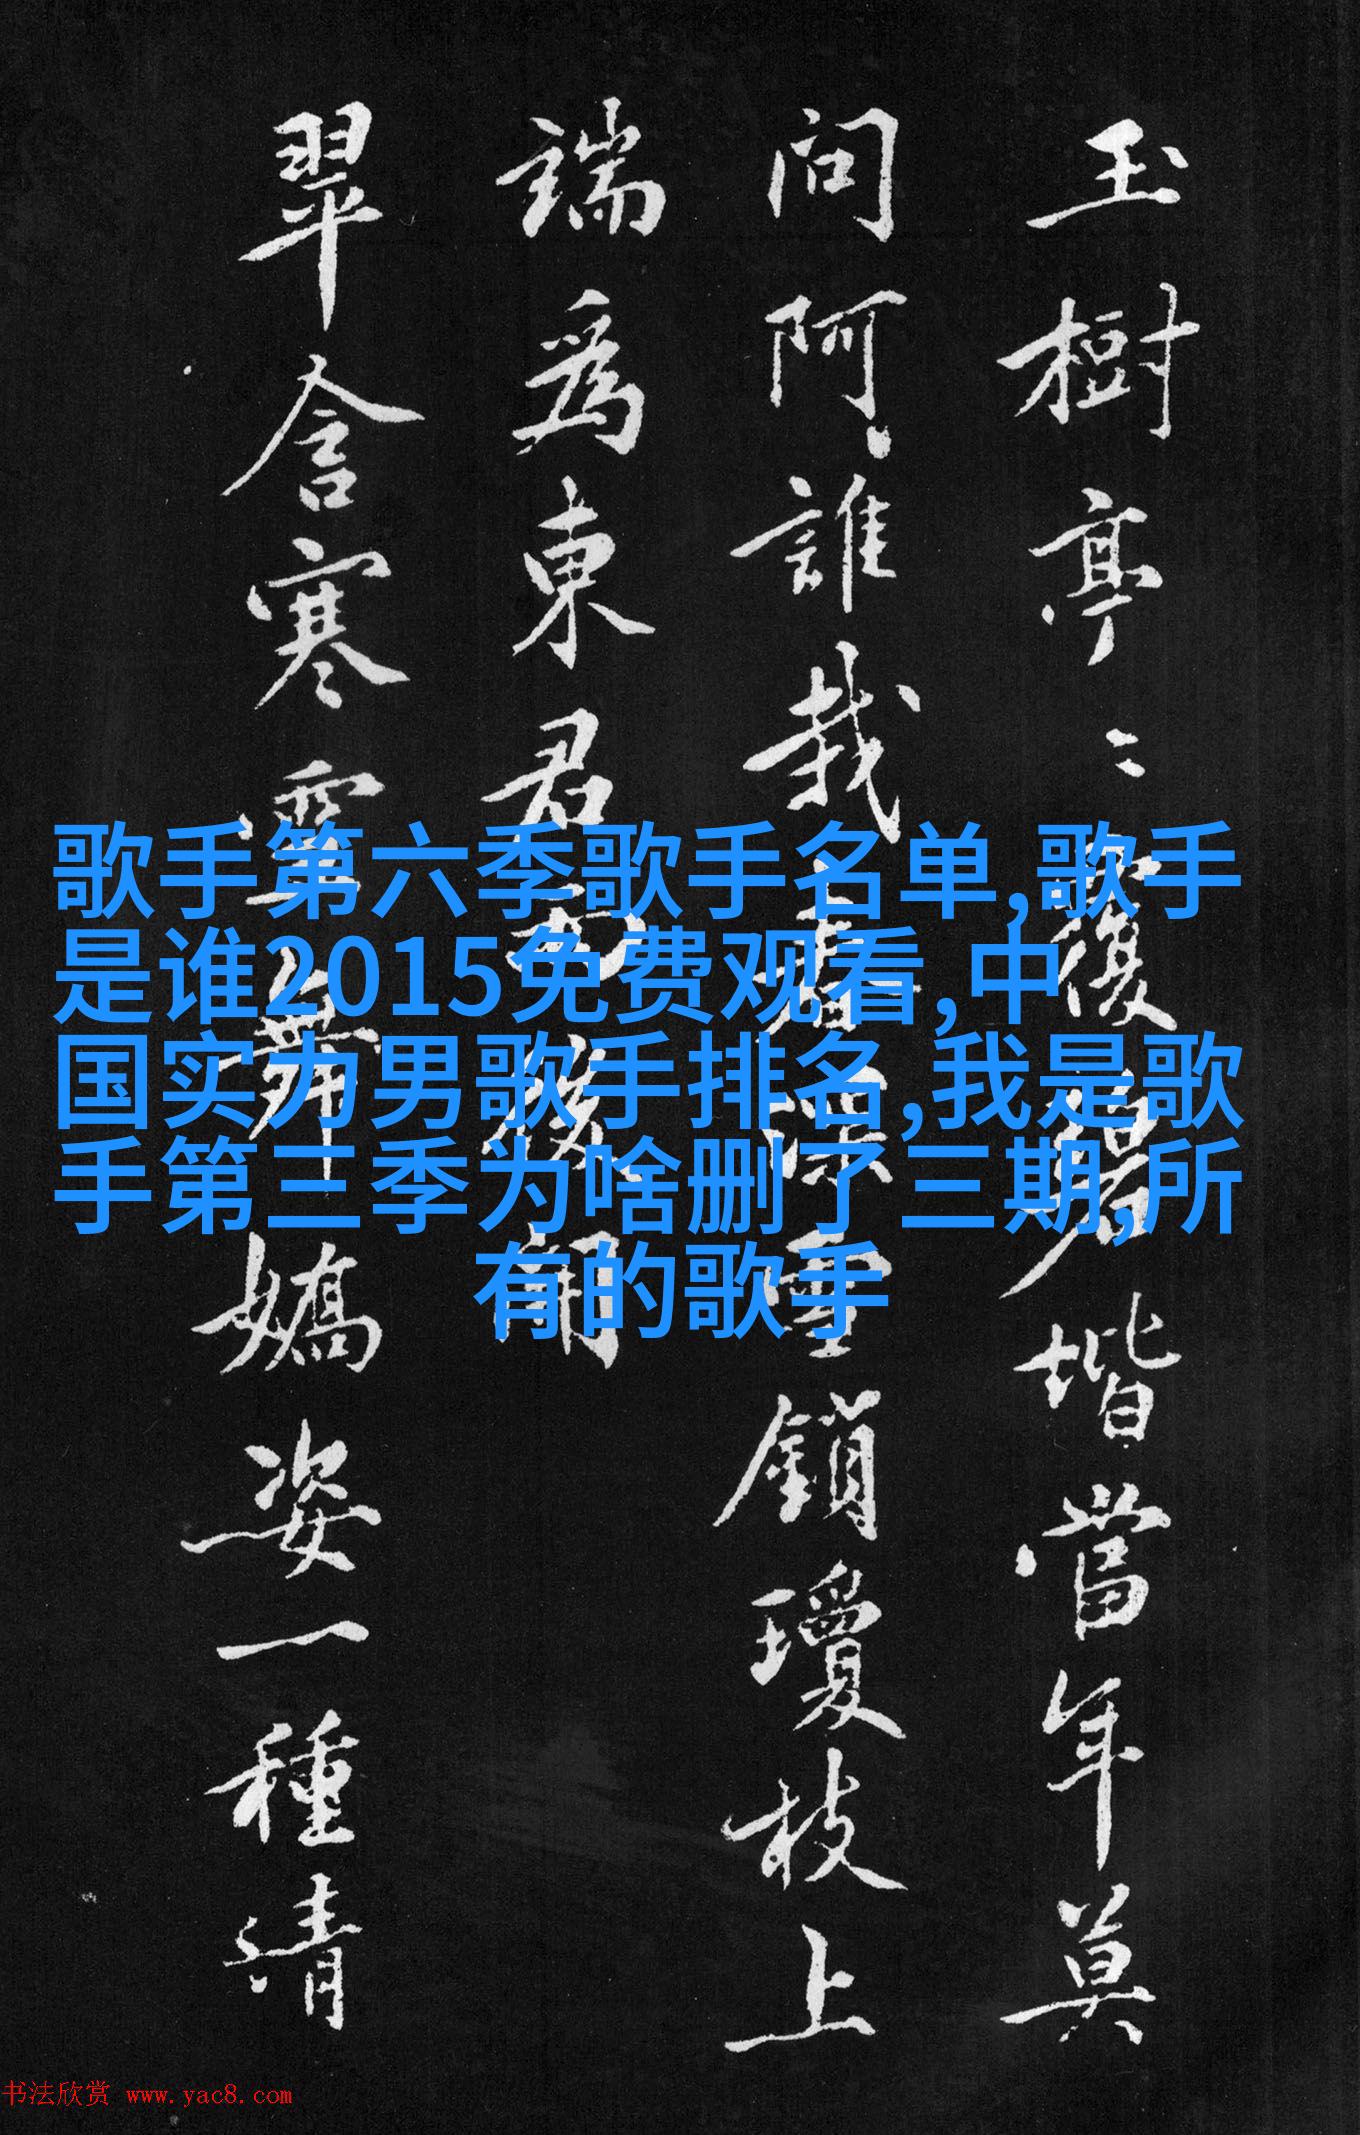 玉樹亭〻
堦當年莫
問阿誰栽
鎖瓊枝上
端爲東君
翠含寒
嬌姿一種清
歌手第六季歌手名单,歌手
是谁2015免费观看,中
国实力男歌手排名,我是歌
手第三季为啥删了三期,所
有的歌手
书法欣赏 www.yac8.com